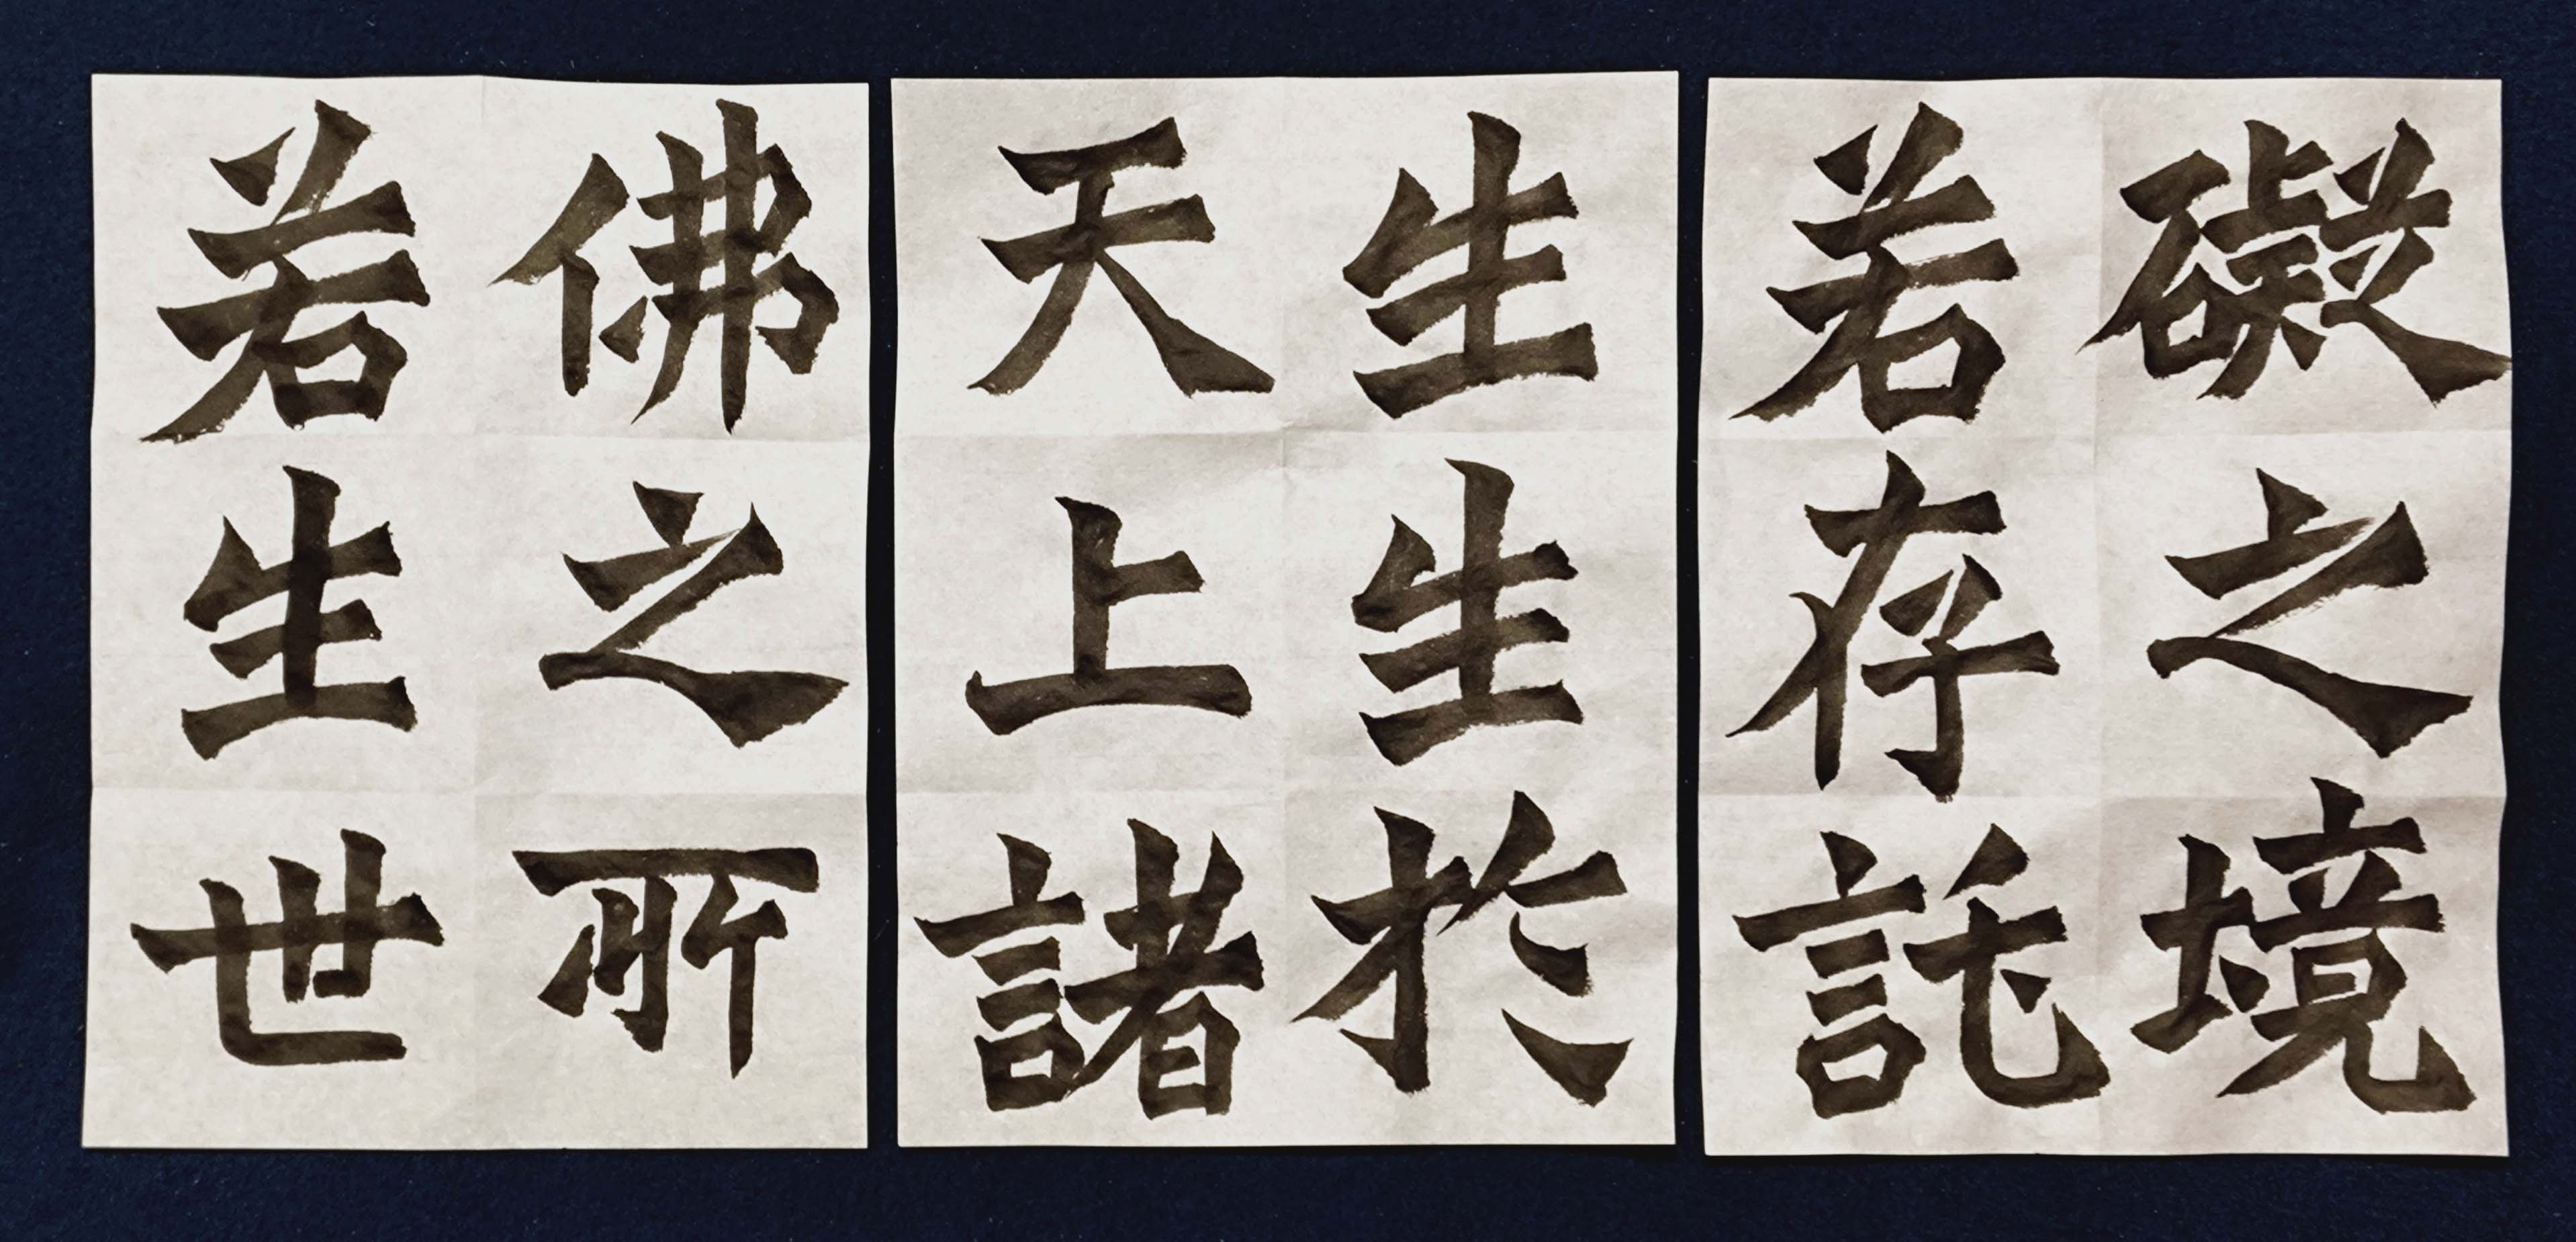 礙之境
若存託
生生於
天上諸
佛之所
若生世